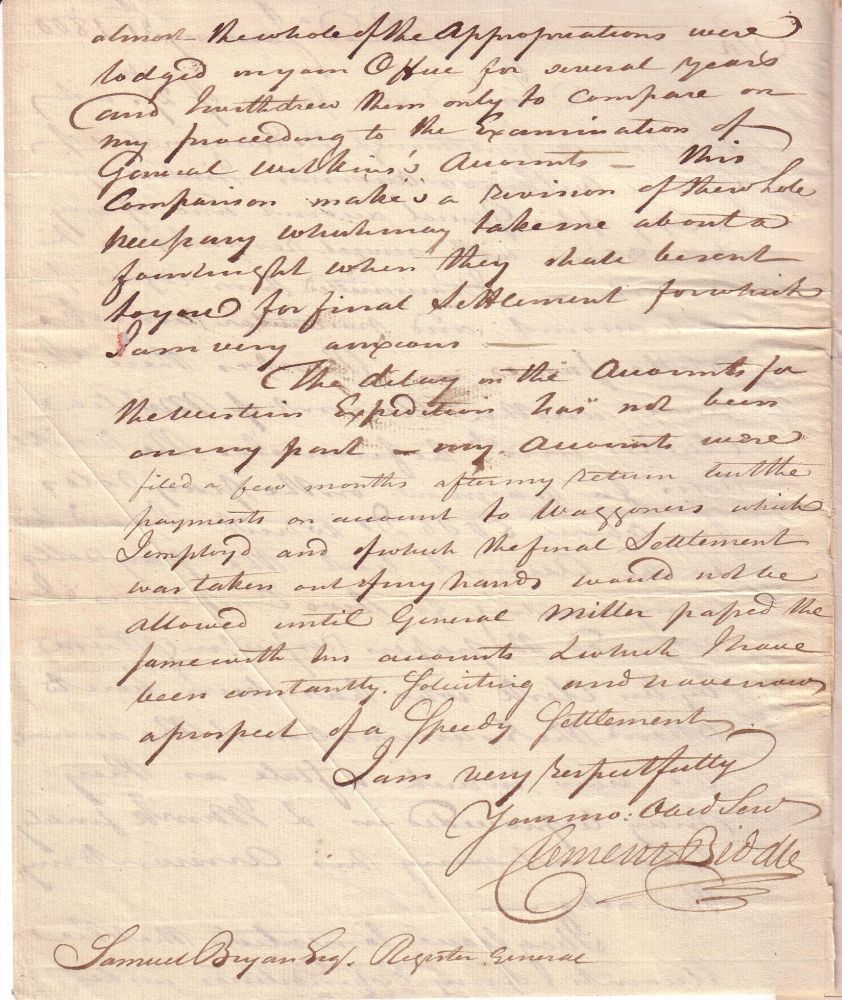 almost the whole of the Appropriations were
lodged in your Office for several years
and I withdrew them only to compare on
my proceeding to the Examination of
General Wilkins's Accounts — this
Comparison makes a revision of the whole
necessary which may take me about a
fourtnight when they shall be sent
to you for final Settlement for which
I am very anxious —
The delay in the Accounts for
the western Expedition has not been
on my part — my Accounts were
filed a few months after my return but the
payments on account to Waggoners which
I employd and of which the final Settlement
was taken out of my hands would not be
allowed until General Miller passed the
same with his accounts & which I have
been constantly soliciting and have now
a prospect of a Speedy Settlement
I am very respectfully
Your mo: Obed Serv
Clement Biddle
Samuel Bryan Esqr. Register General